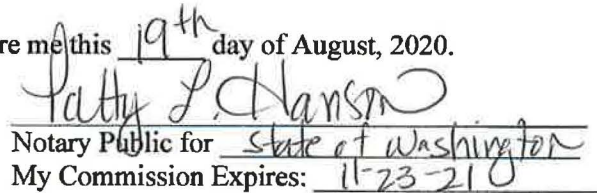 re me this 19th day of August, 2020.
Patty L. Hanson
Notary Public for State of Washington
My Commission Expires: 11-23-21